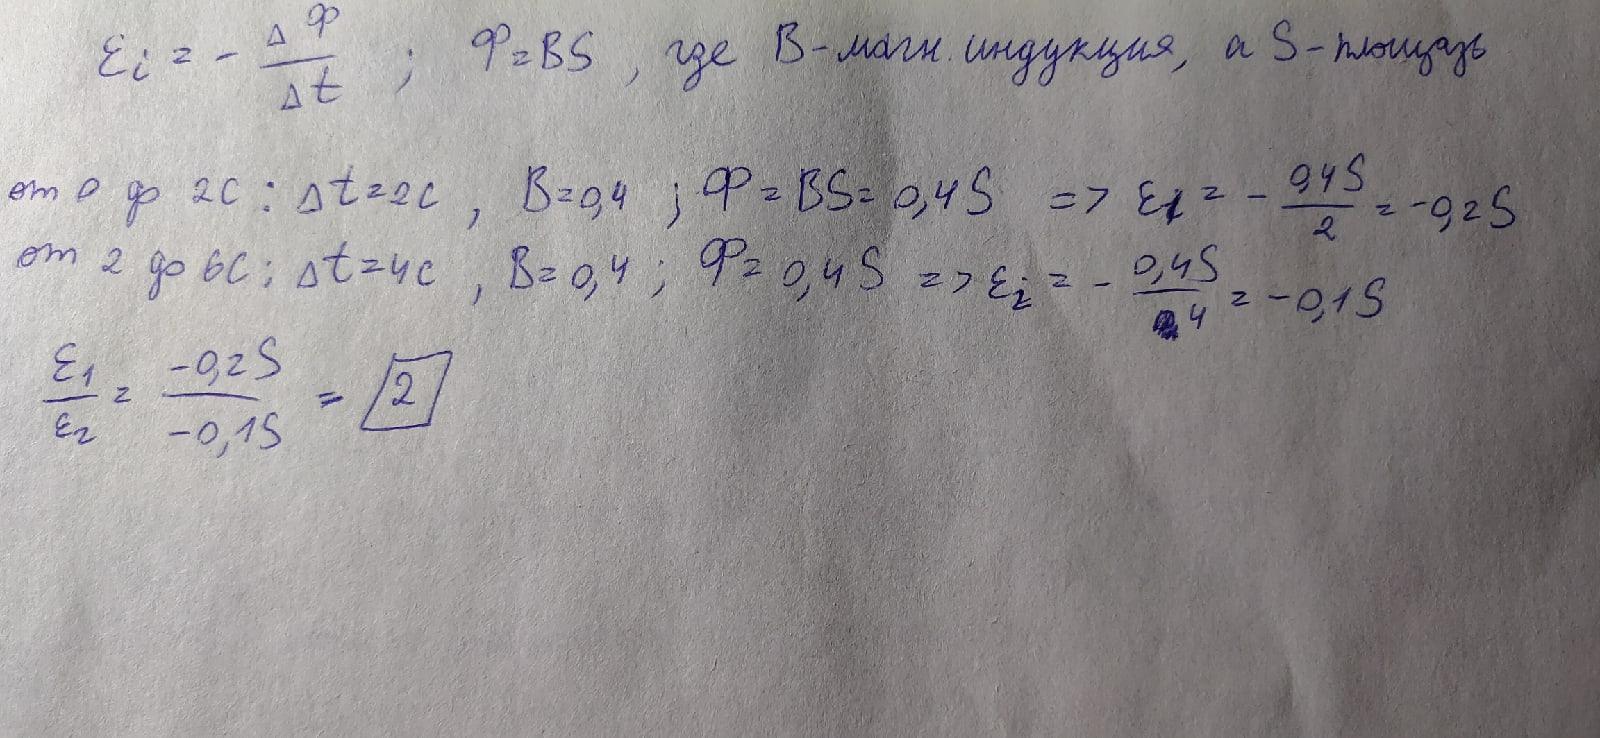 εi = - ΔФ/Δt ; Ф=BS, где B-магн. индукция, а S-площадь
от 0 до 2с: Δt=2с, B=0,4 ; Ф=BS=0,4S => ε1 = - 0,4S/2 = -0,2S
от 2 до 6с: Δt=4с, B=0,4 ; Ф=0,4S => εi2 = - 0,4S/4 = -0,1S
ε1/ε2 = -0,2S/-0,1S = 2